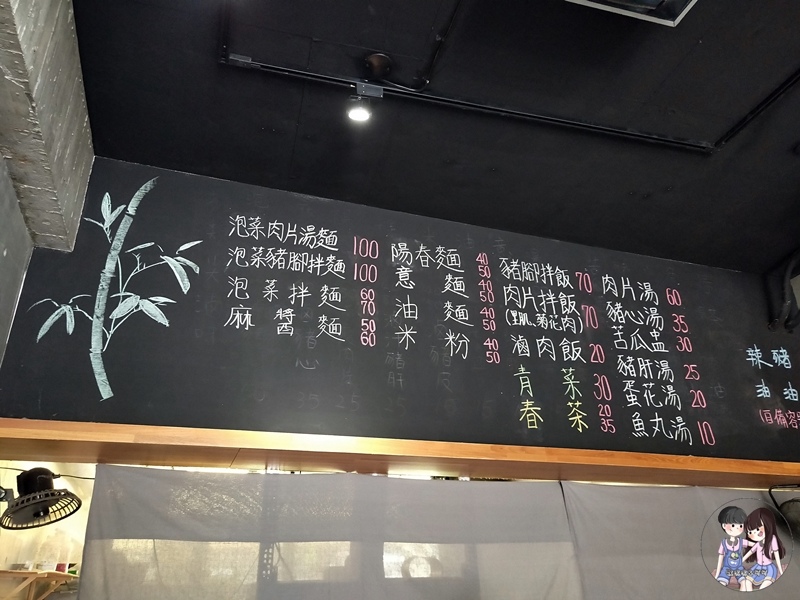 泡菜肉片湯麵 100
泡菜豬腳拌麵 100
泡菜拌麵 60 70
麻醬麵 50 60
陽春麵 40 50
意麵 40 50
油麵 40 50
米粉 40 50
豬腳拌飯 70
肉片拌飯 70
(里肌、菊花肉)
滷肉飯 20
青菜 30
春菜 20 35
肉片湯 60
豬心湯 35
苦瓜盅 30
豬肝湯 25
蛋花湯 20
魚丸湯 10
辣豬
油油
(自備容